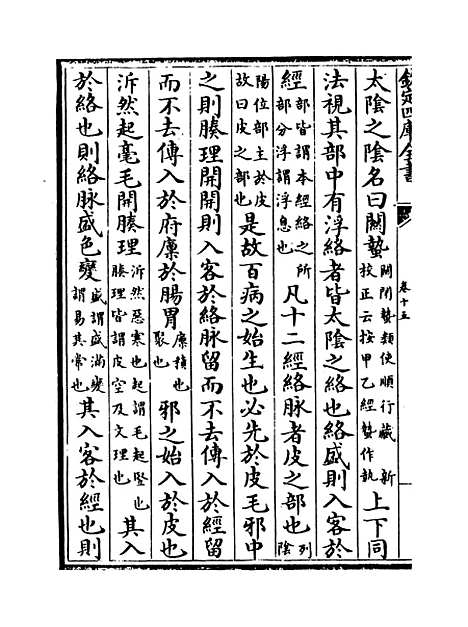 欽定四庫全書
卷十五
太陰之陰名曰關蟄關閉蟄類使順行藏新校正云按甲乙經蟄作執上下同
法視其部中有浮絡者皆太陰之絡也絡盛則入客於
經部皆謂本經絡之所部分浮謂浮息也凡十二經絡脉者皮之部也列陰
陽位部主於皮故曰皮之部也是故百病之始生也必先於皮毛邪中
之則腠理開開則入客於絡脉留而不去傳入於經留
而不去傳入於府廩於腸胃廩積也聚也邪之始入於皮也
泝然起毫毛開腠理泝然惡寒也起謂毛起竪也腠理皆謂皮空及文理也其入
於絡也則絡脉盛色變盛謂盛滿變謂易其常也其入客於經也則